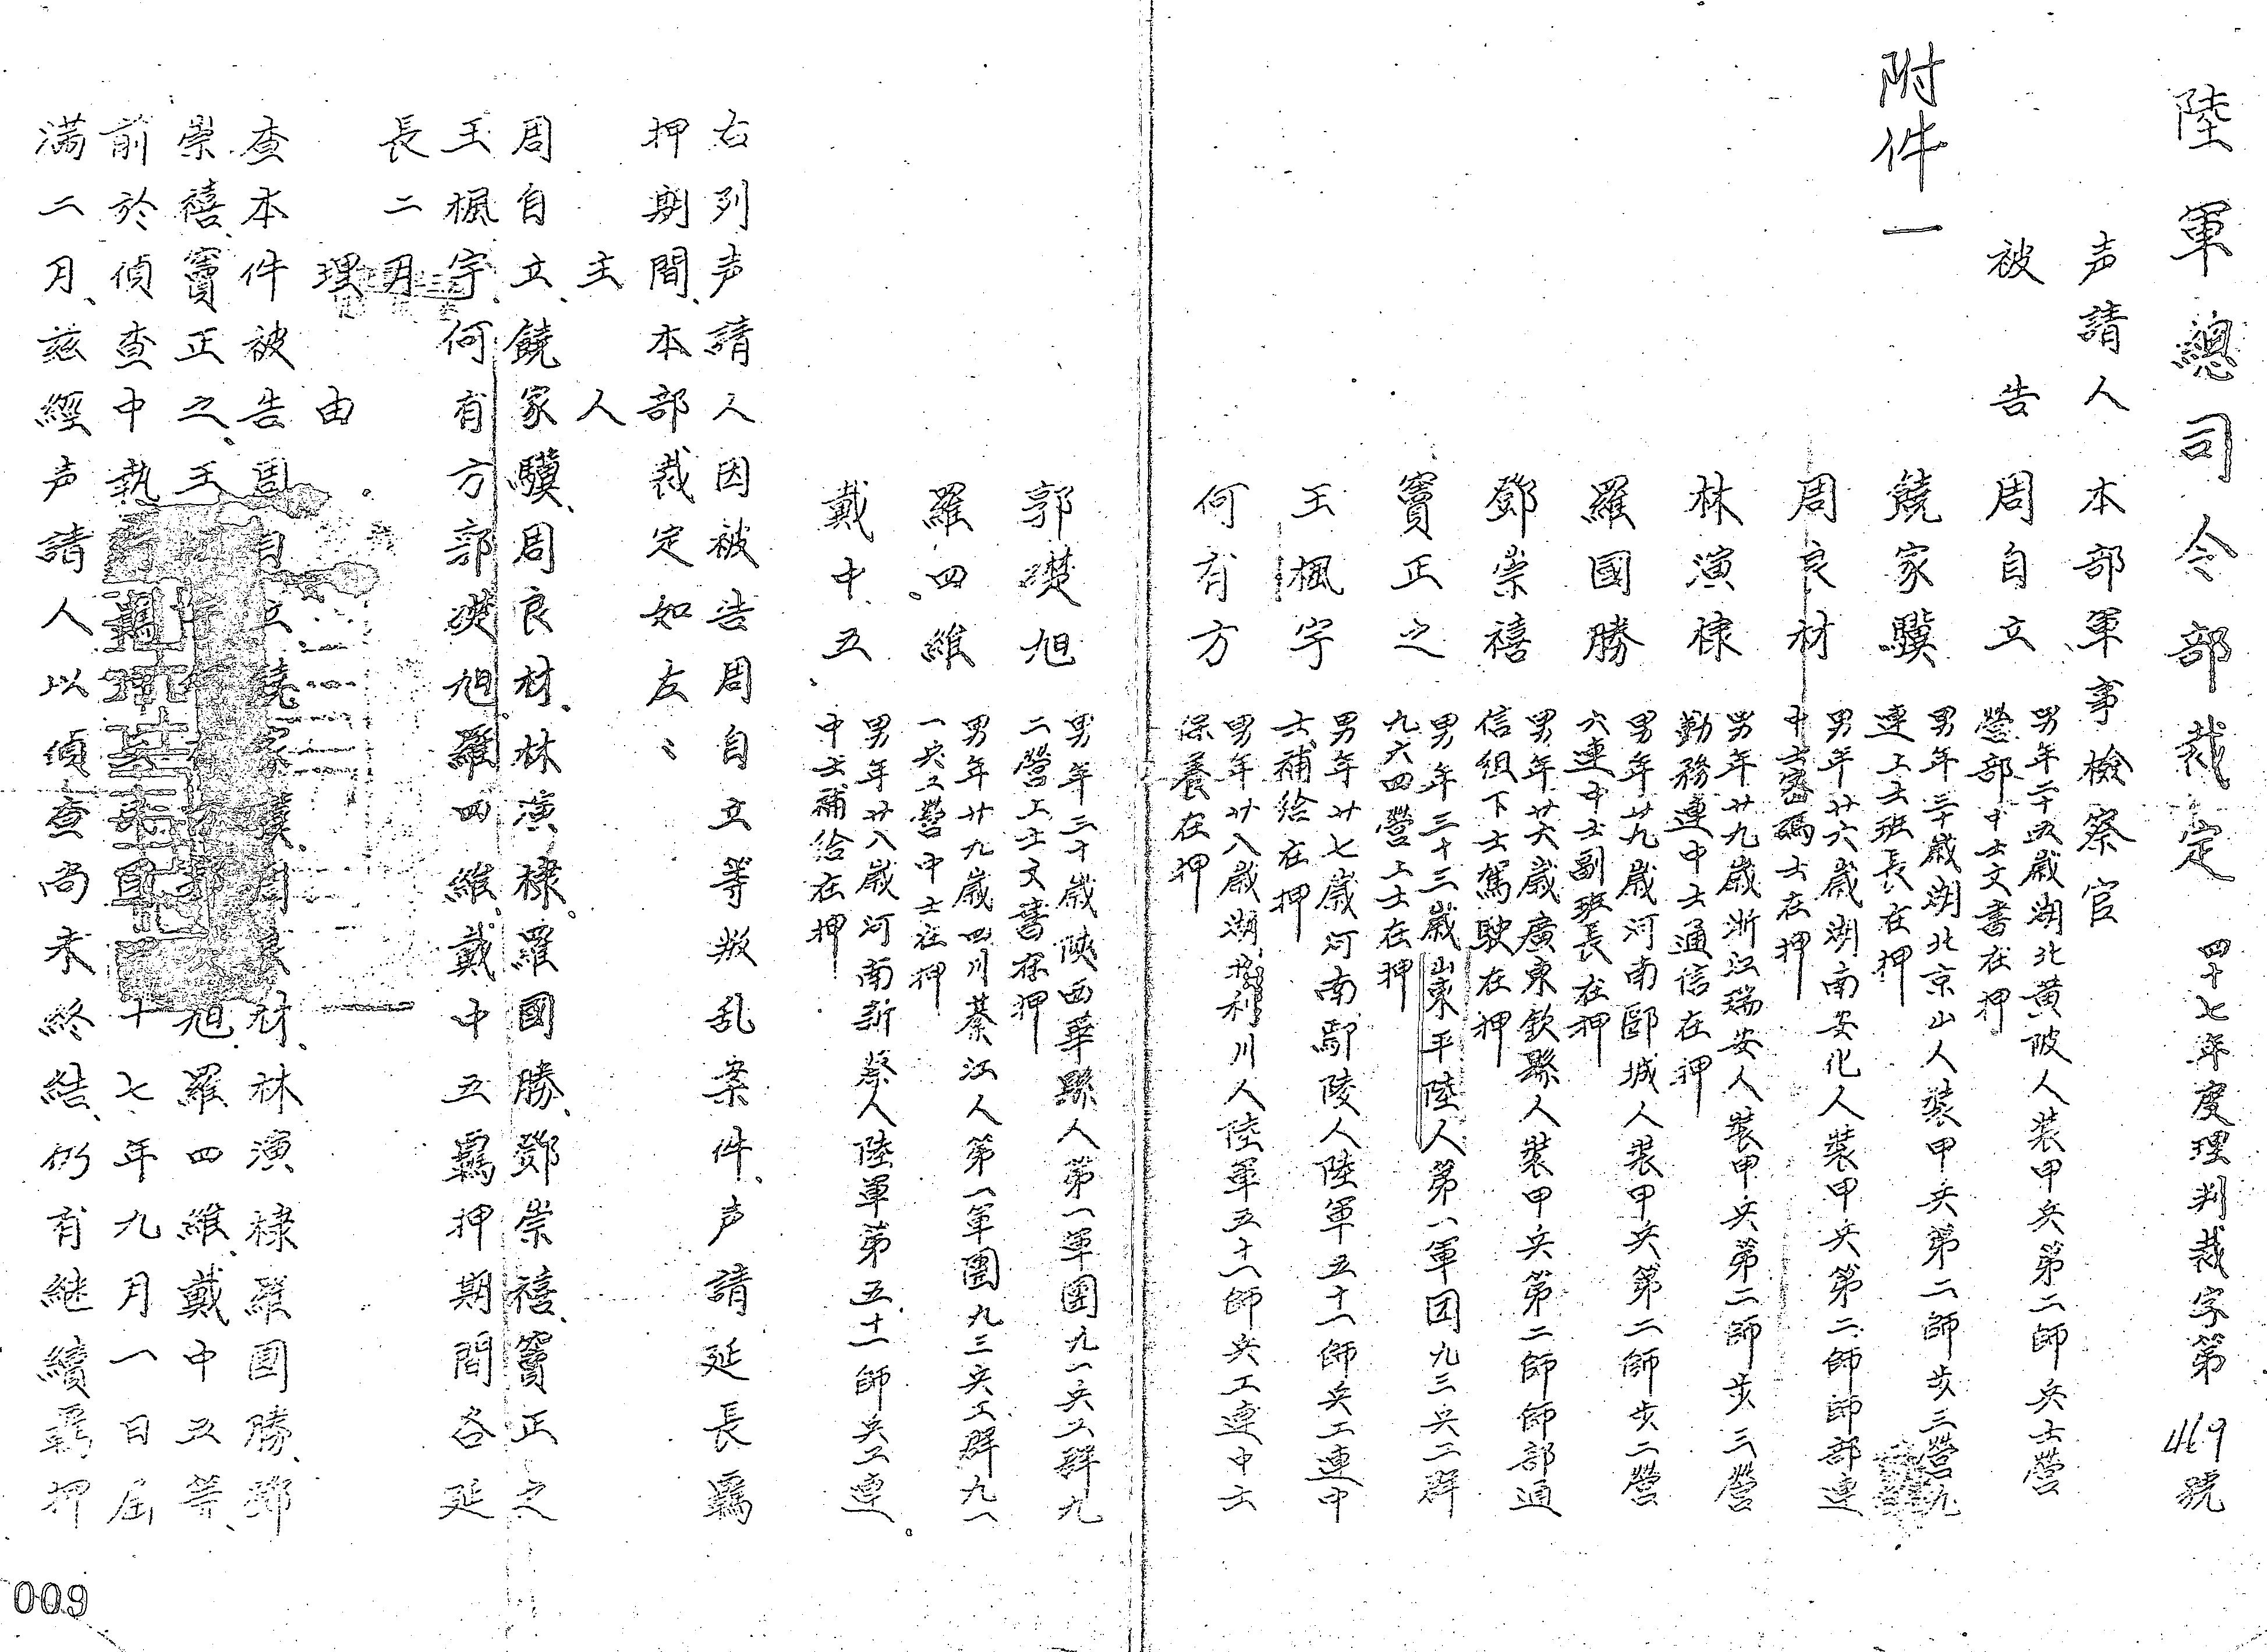 陸軍總司令部裁定 四十七年度理判裁字第469號
声請人 本部軍事檢察官
被告 周自立 男年二十五歲湖北黃陂人裝甲兵第二師兵士營
營部中士文書在押
附件一
饒家驥 男年三十歲湖北京山人裝甲兵第二師步三營九
連上士班長在押
周良材 男年廿六歲湖南安化人裝甲兵第二師師部連
中士密碼士在押
林演棣 男年廿九歲浙江瑞安人裝甲兵第二師步三營
勤務連中士通信在押
羅國勝 男年廿九歲河南郾城人裝甲兵第二師步二營
六連中士副班長在押
鄧崇禧 男年廿六歲廣東欽縣人裝甲兵第二師師部通
信組下士駕駛在押
竇正之 男年三十三歲山東平陸人第一軍团九三兵工群
九六四營上士在押
王楓宇 男年廿七歲河南鄢陵人陸軍五十一師兵工連中
士補給在押
何有方 男年廿八歲湖北利川人陸軍五十一師兵工連中士
保養在押
郭礎旭 男年三十歲陝西華縣人第一軍團九一兵工群九
二營上士文書在押
羅四維 男年廿九歲四川綦江人第一軍團九三兵工群九一
一兵工營中士在押
戴中五 男年廿八歲河南新蔡人陸軍第五十一師兵工連
中士補給在押
右列声請人因被告周自立等叛乱案件、声請延長羈
押期間、本部裁定如左：
主人
周自立、饒家驥、周良材、林演棣、羅國勝、鄧崇禧、竇正之
王楓宇、何有方郭礎旭、羅四維、戴中五羈押期間各延
長二月
理由
查本件被告周自立、饒家驥、周良材、林演棣羅國勝、鄧
崇禧、竇正之、王楓宇何有方郭礎旭、羅四維、戴中五等、
前於偵查中執行羈押至四十七年九月一日屆
滿二月、茲經声請人以偵查尚未終結、仍有継續羈押
009